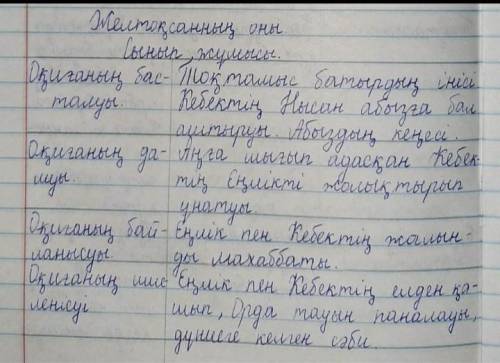 Желтоқсанның оны
Сынып жұмысы.
Оқиғаның бас- Тоқтамыс батырдың інісі
талуы. Кебектің Нысан абызға бал
аштыруы. Абыздың кеңесі.
Оқиғаның да- Аңға шығып адасқан Кебек-
муы. тің Еңлікті жолықтырып
ұнатуы.
Оқиғаның бай- Еңлік пен Кебектің жалын-
ланысуы ды махаббаты.
Оқиғаның шие Еңлік пен Кебектің елден қа-
ленісуі шып, Орда тауын паналауы,
дүниеге келген сәби.